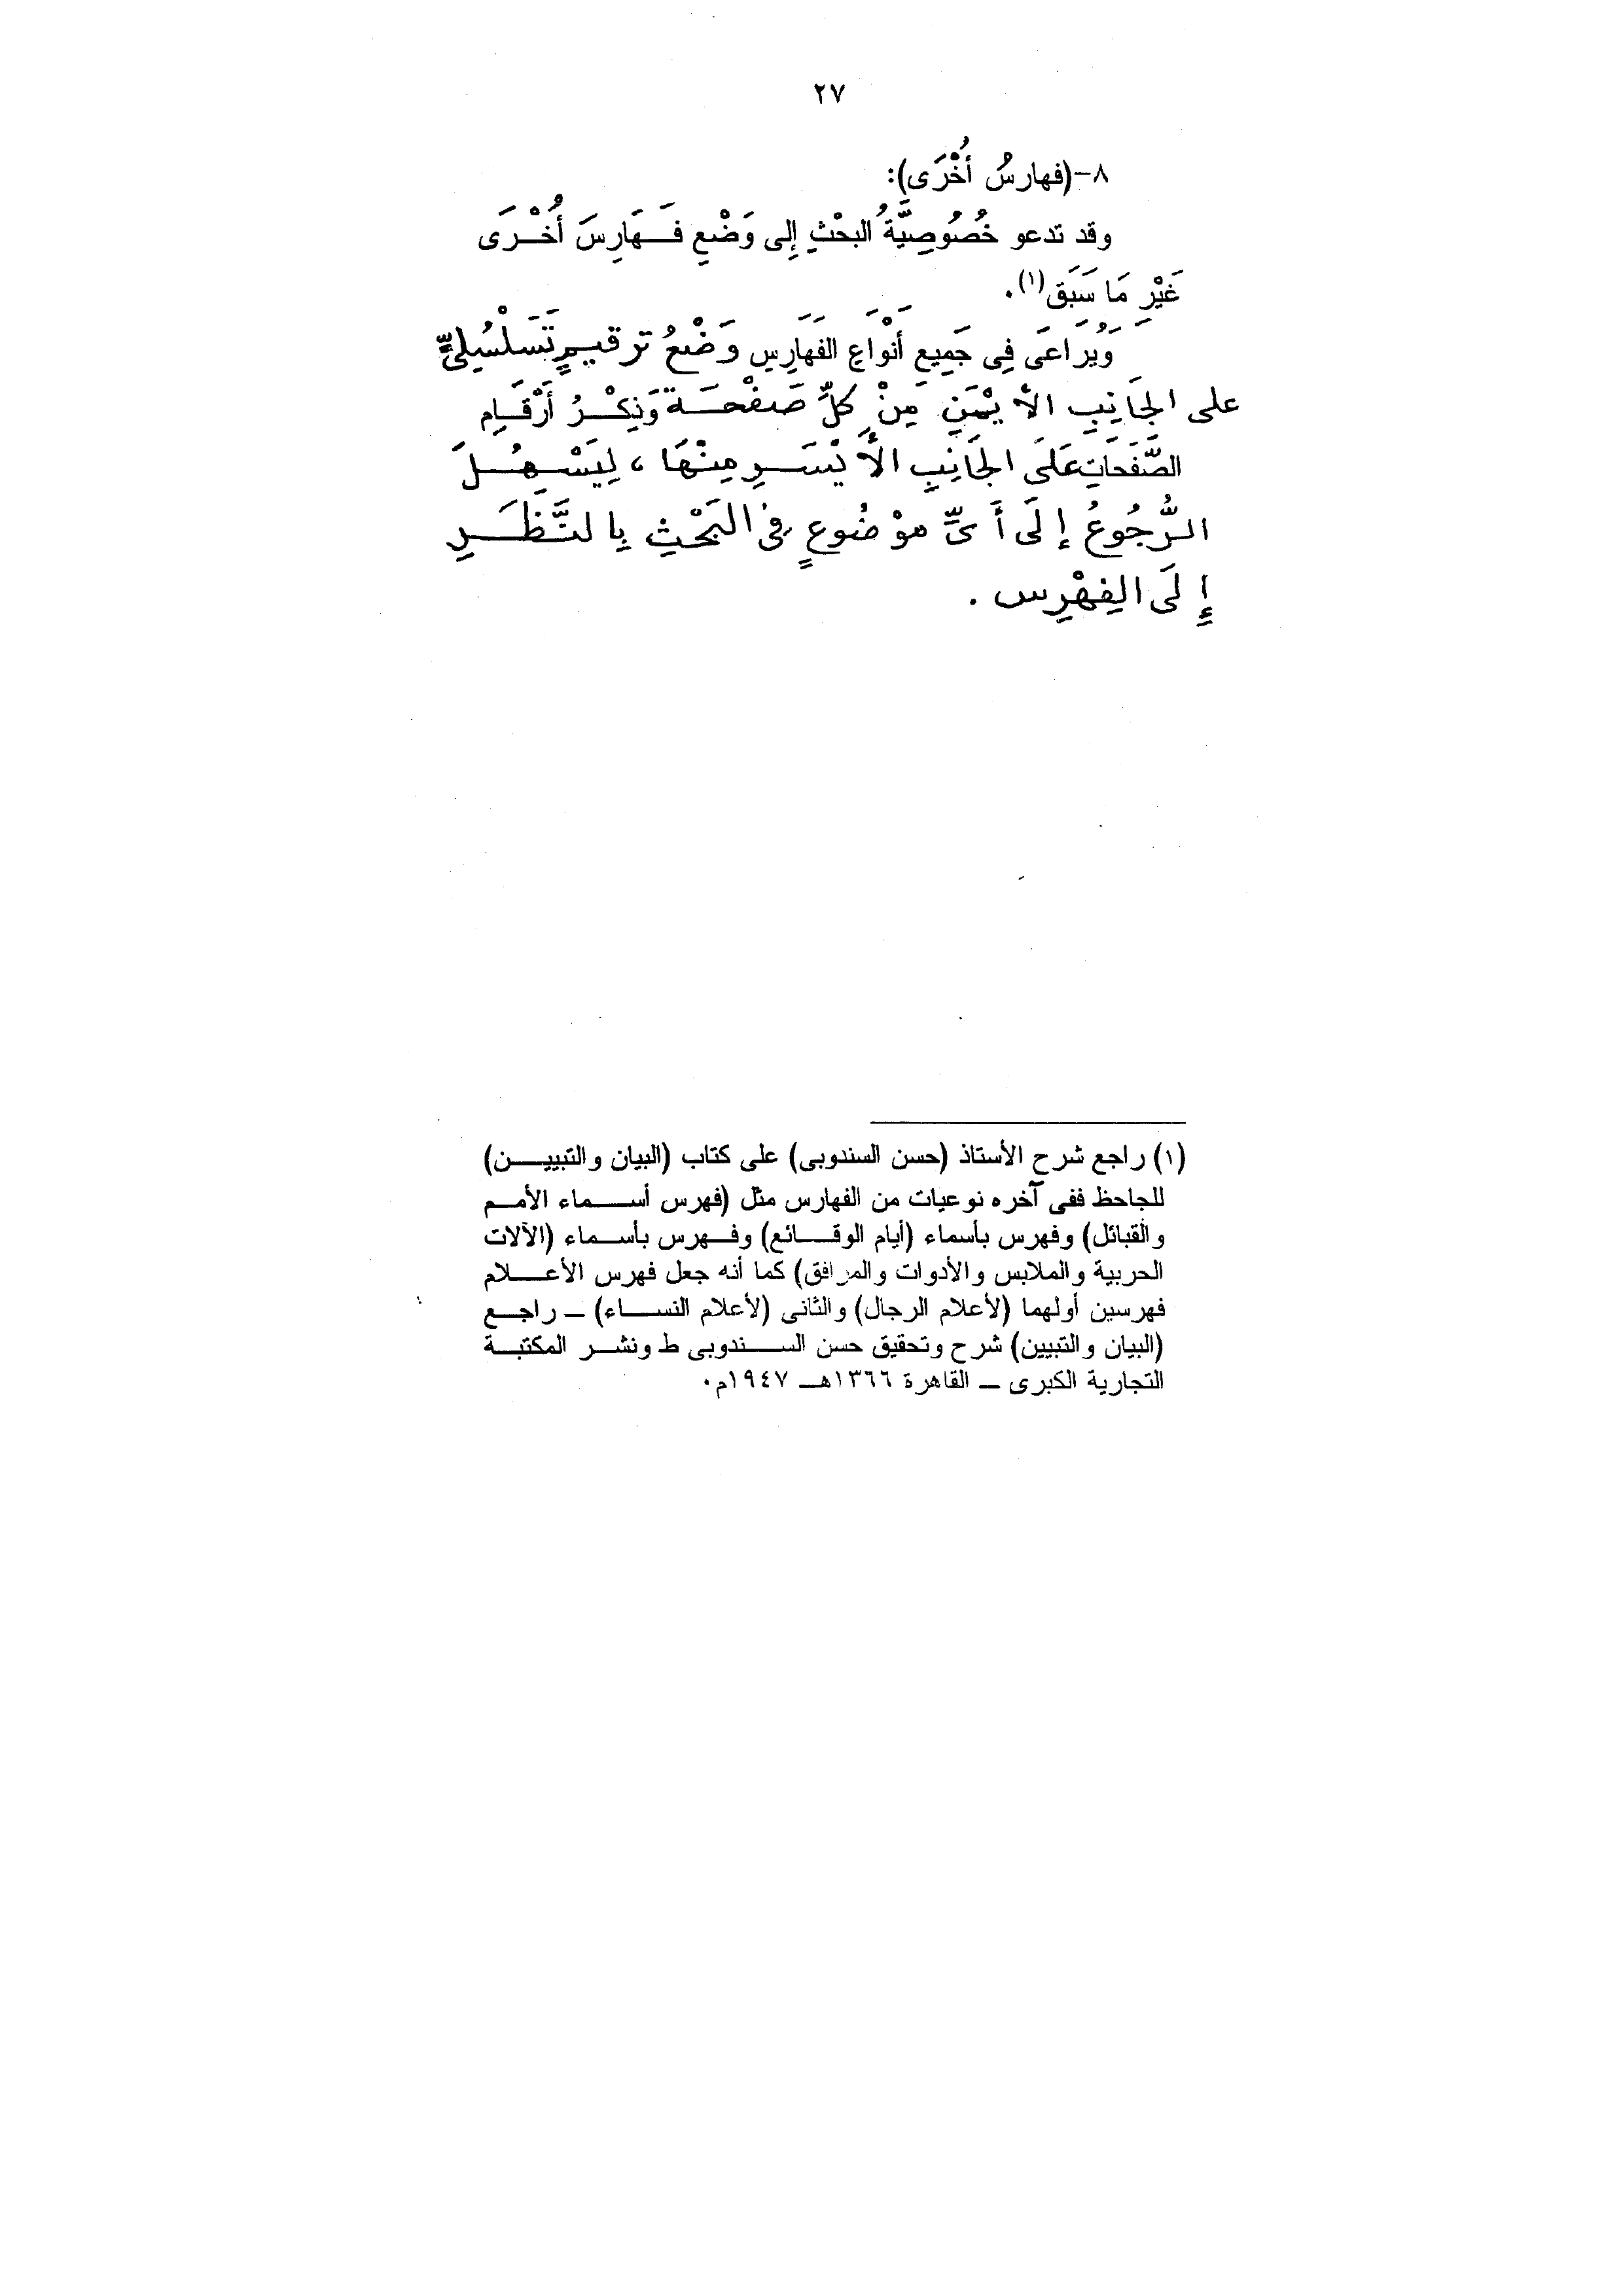 ٢٧
٨-(فهارسُ أُخْرَى):
وقد تدعو خُصُوصِيَّةُ البحْثِ إلى وَضْعِ فَهَارِسَ أُخْرَى
غَيْرِ مَا سَبَقَ(١).
وَيُرَاعَى فِى جَمِيعِ أَنْوَاعِ الفَهَارِسِ وَضْعُ ترقيمٍ تَسَلْسُلِىٍّ
على الجَانِبِ الأيْمَنِ مِنْ كلِّ صَفْحَةٍ وَذِكْرُ أَرْقَامِ
الصَّفَحَاتِ عَلَى الجَانِبِ الأَيْسَرِ مِنْهَا، لِيَسْهُلَ
الرُّجُوعُ إلَى أَىِّ موْضُوعٍ فى البَحْثِ بِالنَّظَرِ
إِلَى الفِهْرِس.
(١) راجع شرح الأستاذ (حسن السندوبى) على كتاب (البيان والتبيين)
للجاحظ ففى آخره نوعيات من الفهارس مثل (فهرس أسماء الأمم
والقبائل) وفهرس بأسماء (أيام الوقائع) وفهرس بأسماء (الآلات
الحربية والملابس والأدوات والمرافق) كما أنه جعل فهرس الأعلام
فهرسين أولهما (لأعلام الرجال) والثانى (لأعلام النساء) – راجع
(البيان والتبيين) شرح وتحقيق حسن السندوبى ط ونشر المكتبة
التجارية الكبرى – القاهرة ١٣٦٦هـ ١٩٤٧م.